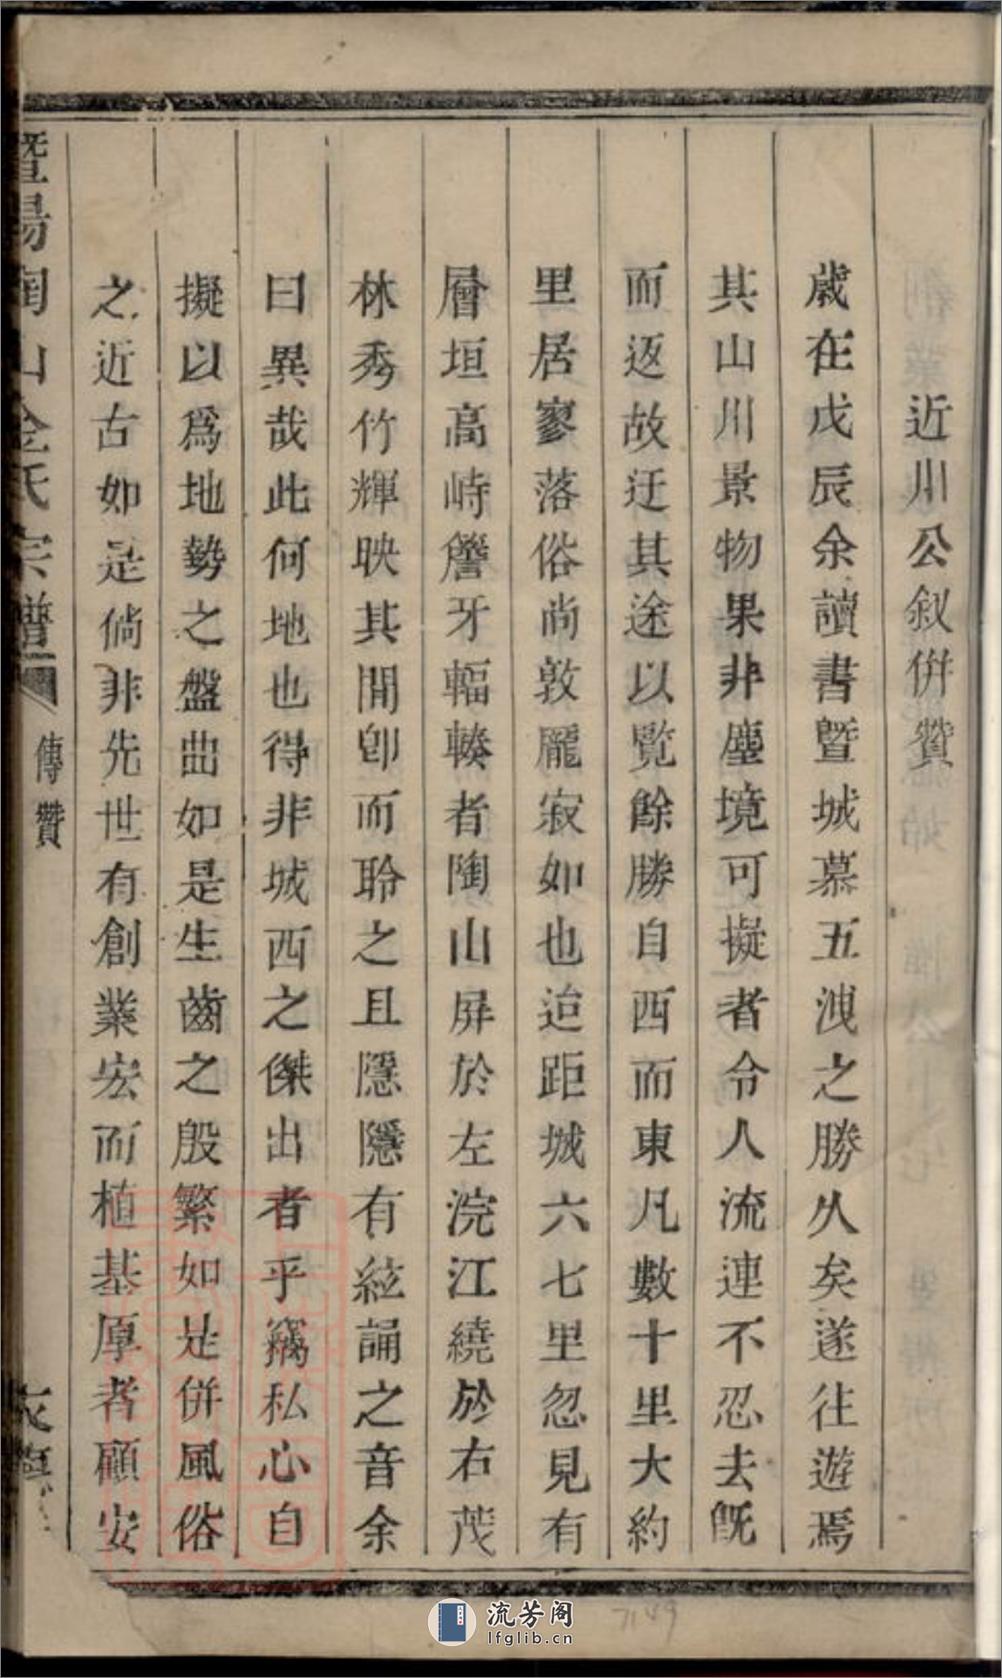 近川公叙併贊
歲在戊辰余讀書暨城慕五洩之勝久矣遂往遊焉
其山川景物果非塵境可擬者令人流連不忍去既
而返故迂其途以覽餘勝自西而東凡數十里大約
里居寥落俗尚敦龐寂如也迨距城六七里忽見有
層垣高峙簷牙輻輳者陶山屏於左浣江繞於右茂
林秀竹輝映其間卽而聆之且隱隱有絃誦之音余
曰異哉此何地也得非城西之傑出者乎竊私心自
擬以爲地勢之盤曲如是生齒之殷繁如是併風俗
之近古如是倘非先世有創業宏而植基厚者顧安
暨陽陶山金氏宗譜 傳贊
流芳阁
lfglib.cn
7149